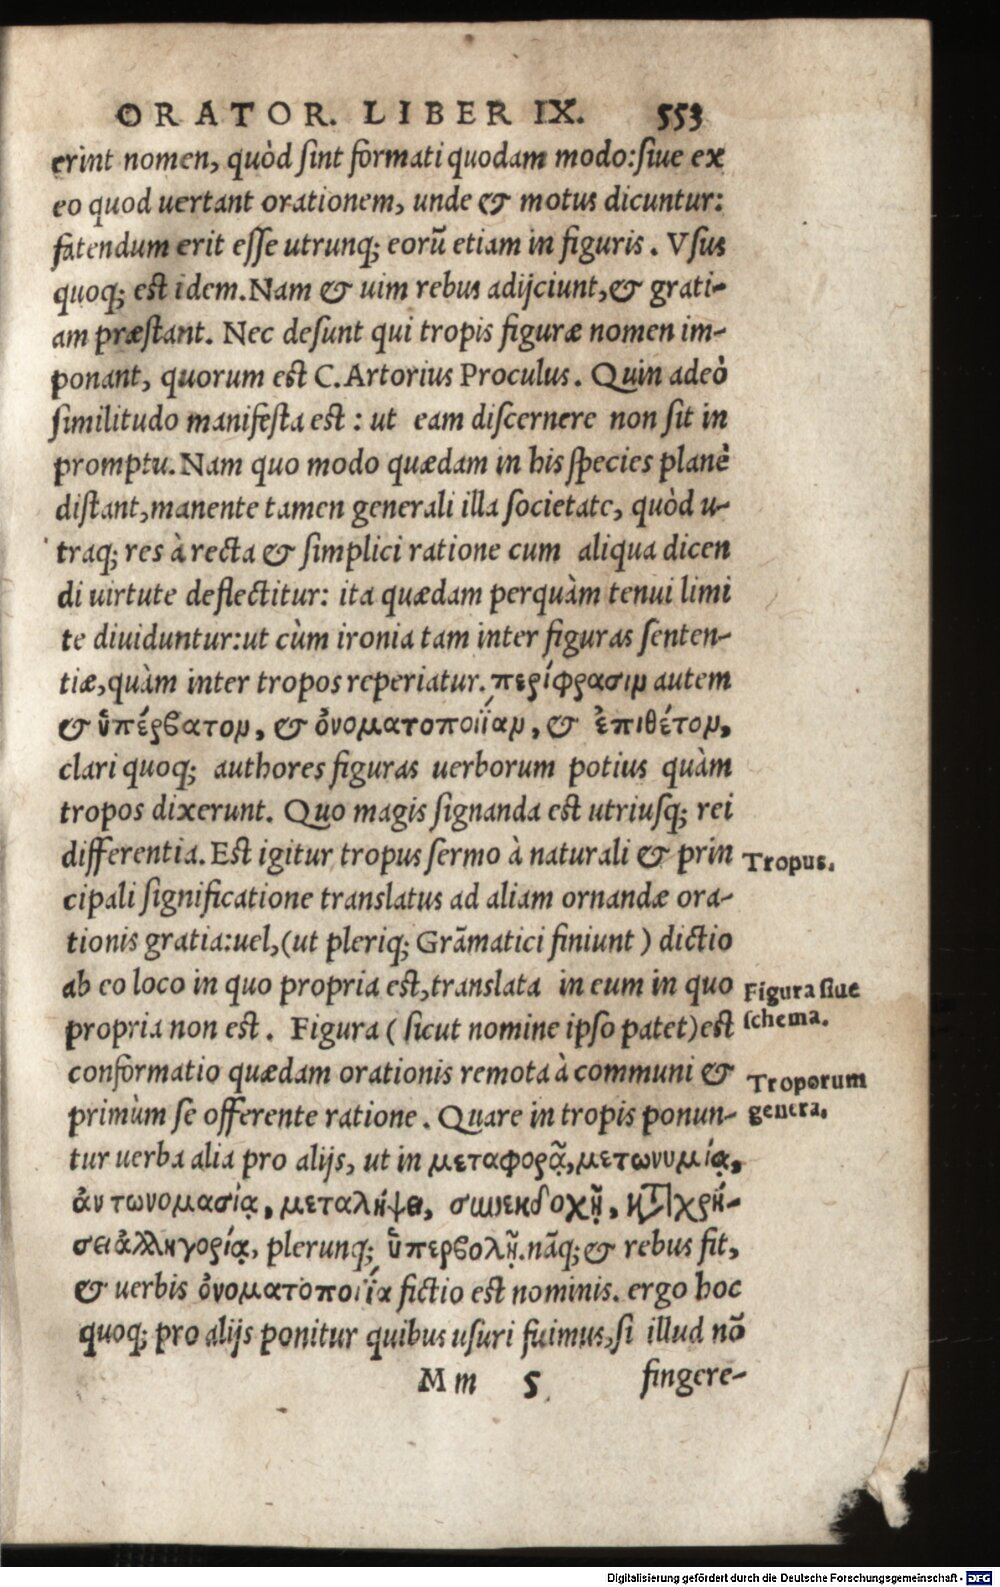 ORATOR. LIBER IX. 553
erint nomen, quòd sint formati quodam modo: siue ex
eo quod uertant orationem, unde & motus dicuntur:
fatendum erit esse utrunq; eorũ etiam in figuris. Vsus
quoq; est idem. Nam & uim rebus adijciunt, & grati-
am præstant. Nec desunt qui tropis figuræ nomen im-
ponant, quorum est C. Artorius Proculus. Quin adeò
similitudo manifesta est: ut eam discernere non sit in
promptu. Nam quo modo quædam in his species planè
distant, manente tamen generali illa societate, quòd u-
traq; res à recta & simplici ratione cum aliqua dicen
di uirtute deflectitur: ita quædam perquàm tenui limi
te diuiduntur: ut cùm ironia tam inter figuras senten-
tiæ, quàm inter tropos reperiatur. περίφρασιμ autem
& ὑπέρβατομ, & ὀνοματοποιΐαμ, & ἐπιθέτομ,
clari quoq; authores figuras uerborum potius quàm
tropos dixerunt. Quo magis signanda est utriusq; rei
differentia. Est igitur tropus sermo à naturali & prin
Tropus.
cipali significatione translatus ad aliam ornandæ ora-
tionis gratia: uel, (ut pleriq; Grãmatici finiunt) dictio
ab eo loco in quo propria est, translata in eum in quo
Figura siue
propria non est. Figura (sicut nomine ipso patet) est
schema.
conformatio quædam orationis remota à communi &
Troporum
primùm se offerente ratione. Quare in tropis ponun-
genera.
tur uerba alia pro alijs, ut in μεταφορᾷ, μετωνυμίᾳ,
ἀντωνομασίᾳ, μεταλήψει, συνεκδοχῇ, καταχρή-
σει ἀλληγορίᾳ, plerunq; ὑπερβολῇ. nãq; & rebus fit,
& uerbis ὀνοματοποιΐα fictio est nominis. ergo hoc
quoq; pro alijs ponitur quibus usuri fuimus, si illud nõ
Mm 5 fingere-
Digitalisierung gefördert durch die Deutsche Forschungsgemeinschaft - DFG